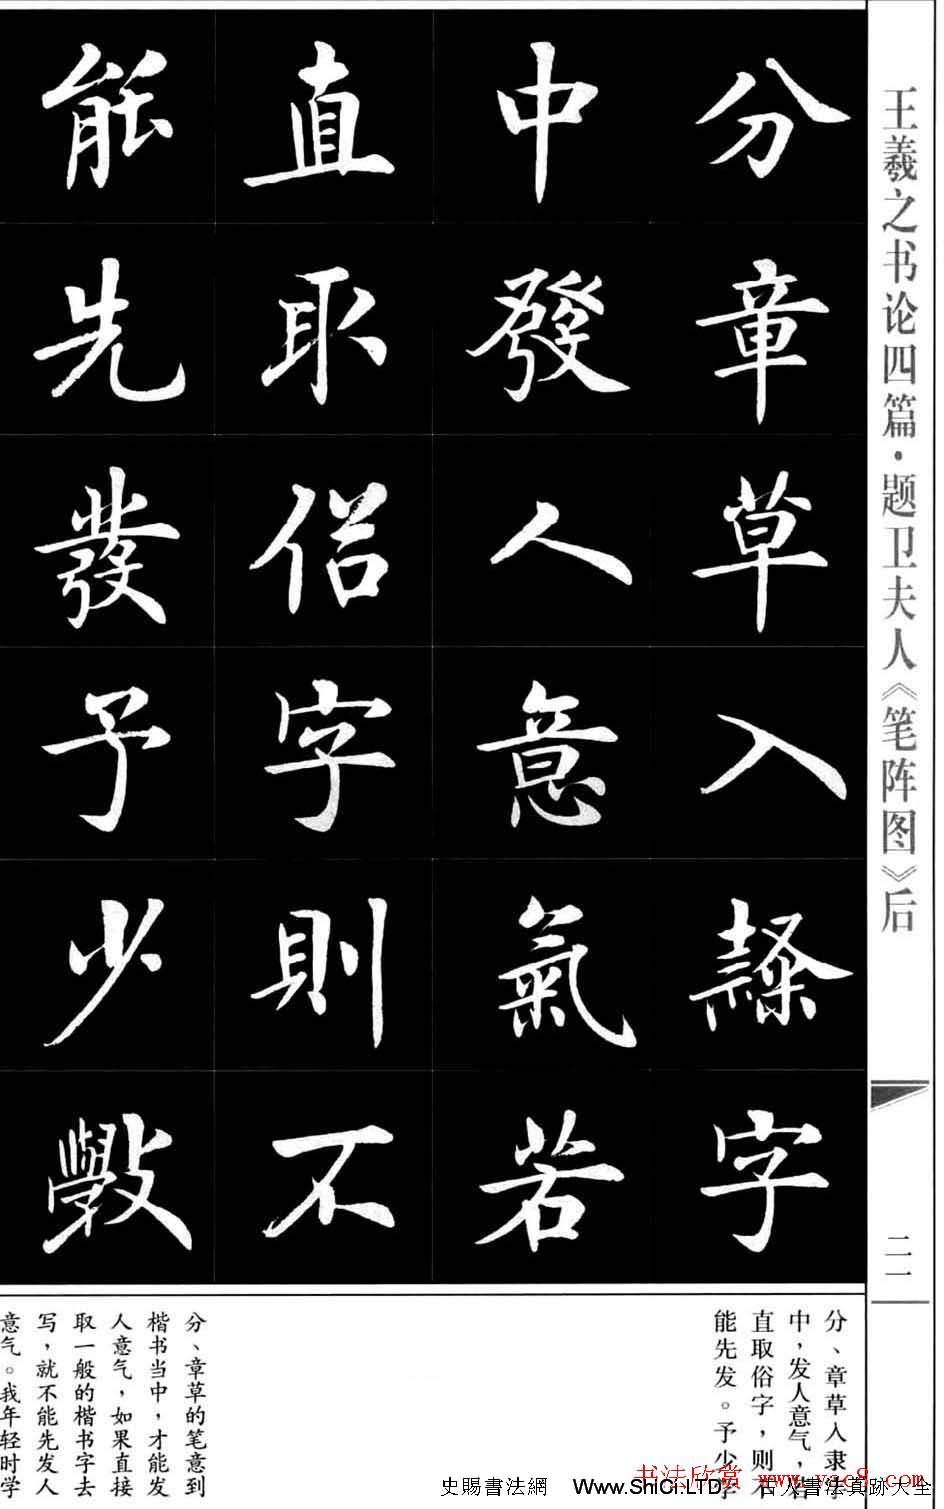 王羲之书论四篇·题卫夫人《笔阵图》后
二一
分章草入隸字
中發人意氣若
直取俗字則不
能先發予少學
分、章草入隶
中，发人意气，
直取俗字，则不
能先发。予少学
分、章草的笔意到
楷书当中，才能发
人意气，如果直接
取一般的楷书字去
写，就不能先发人
意气。我年轻时学
史賜書法網
www.ShiCi.LTD
古人書法真跡大全
书法欣赏 www.yac8.com